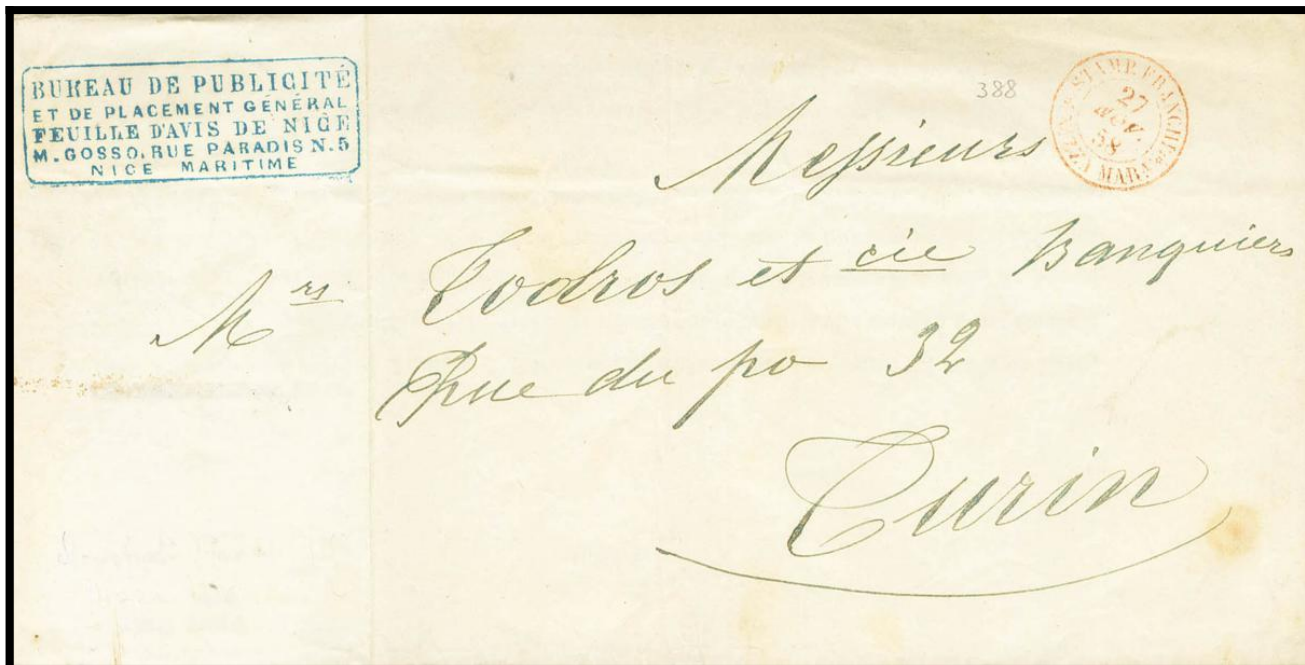 BUREAU DE PUBLICITÉ
ET DE PLACEMENT GÉNÉRAL
FEUILLE D'AVIS DE NICE
M. GOSSO, RUE PARADIS N. 5
NICE MARITIME
388
STAMP. FRANCHE
NIZZA MARA
27
NOV.
58
Messieurs
Mrs Todros et cie Banquiers
Rue du po 32
Turin